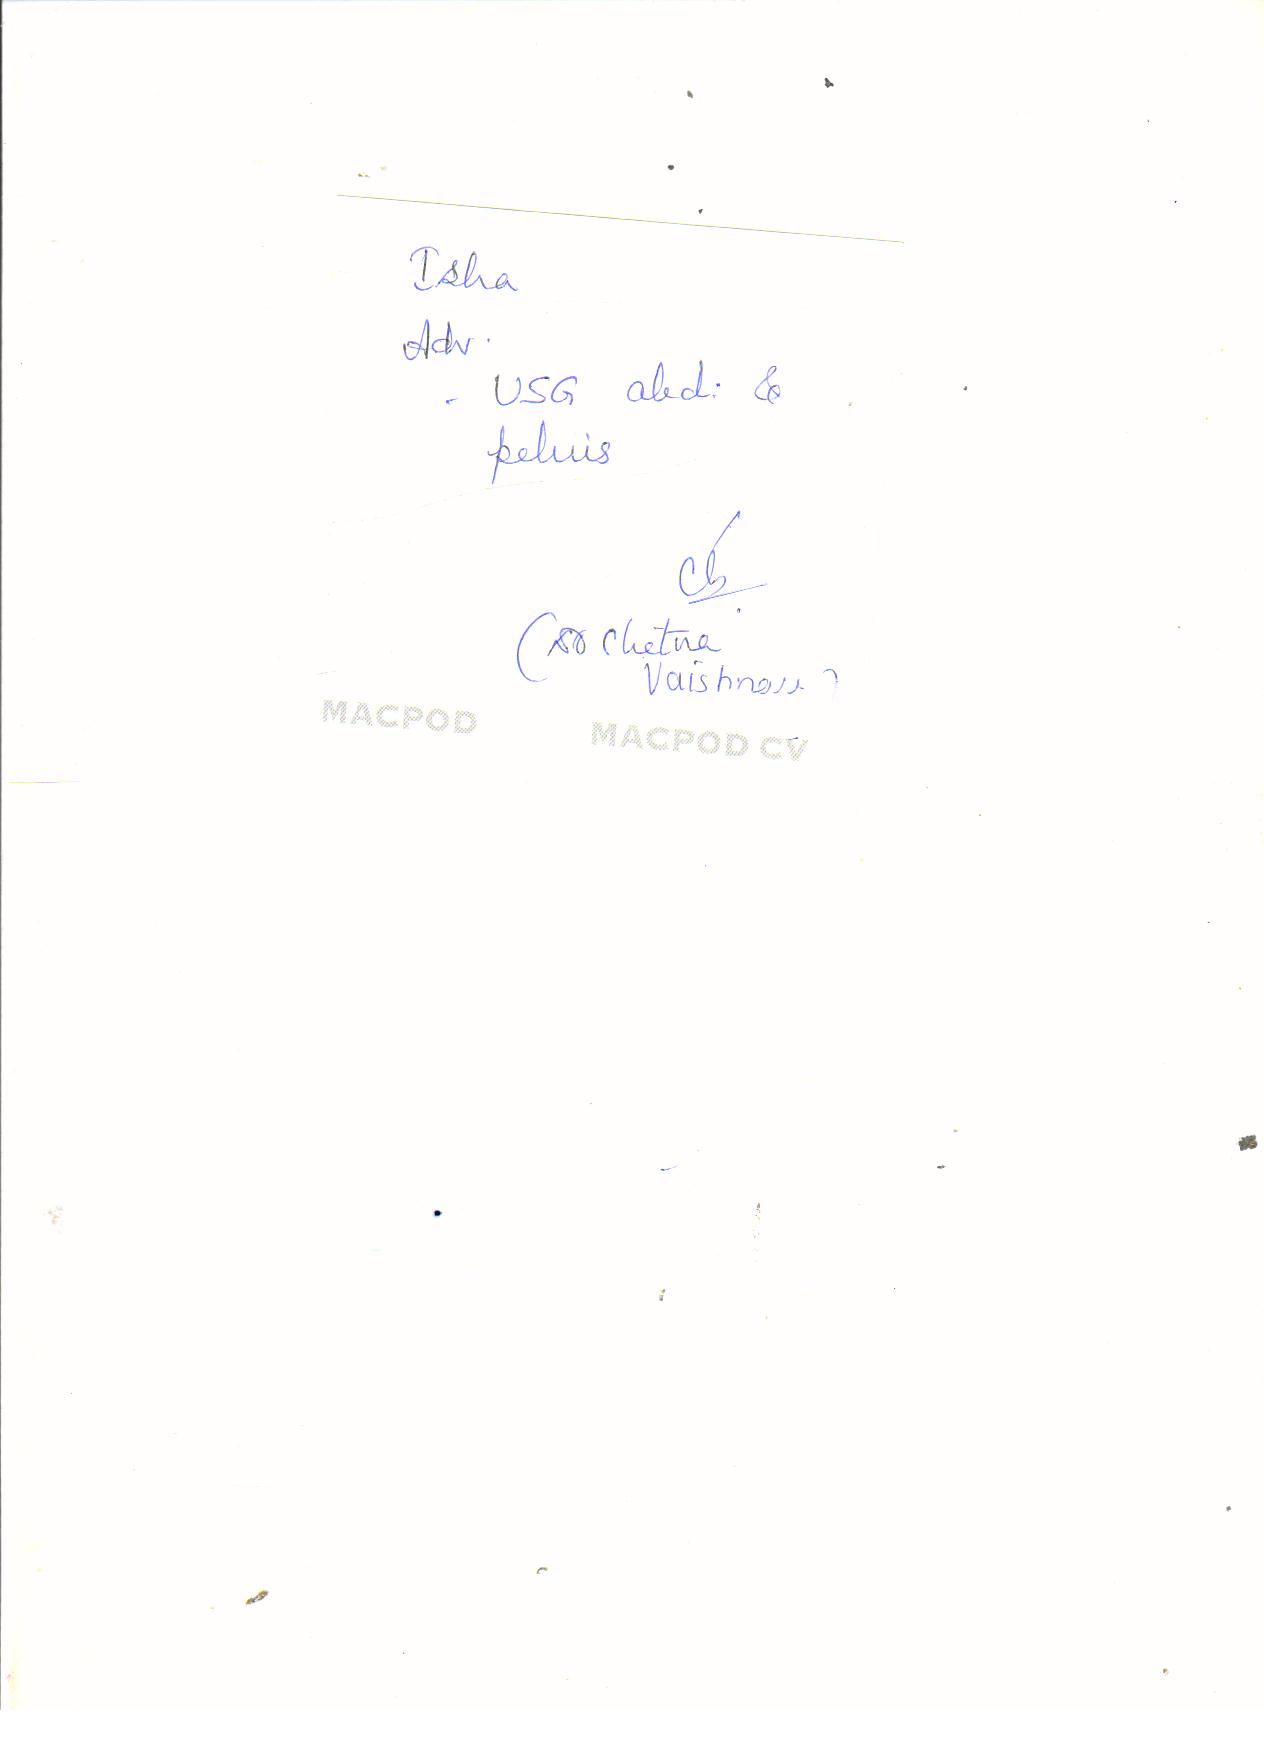 Isha
Adv.
- USG abd: &
pelvis
(Dr Chetna
Vaishnav)
MACPOD MACPOD CV